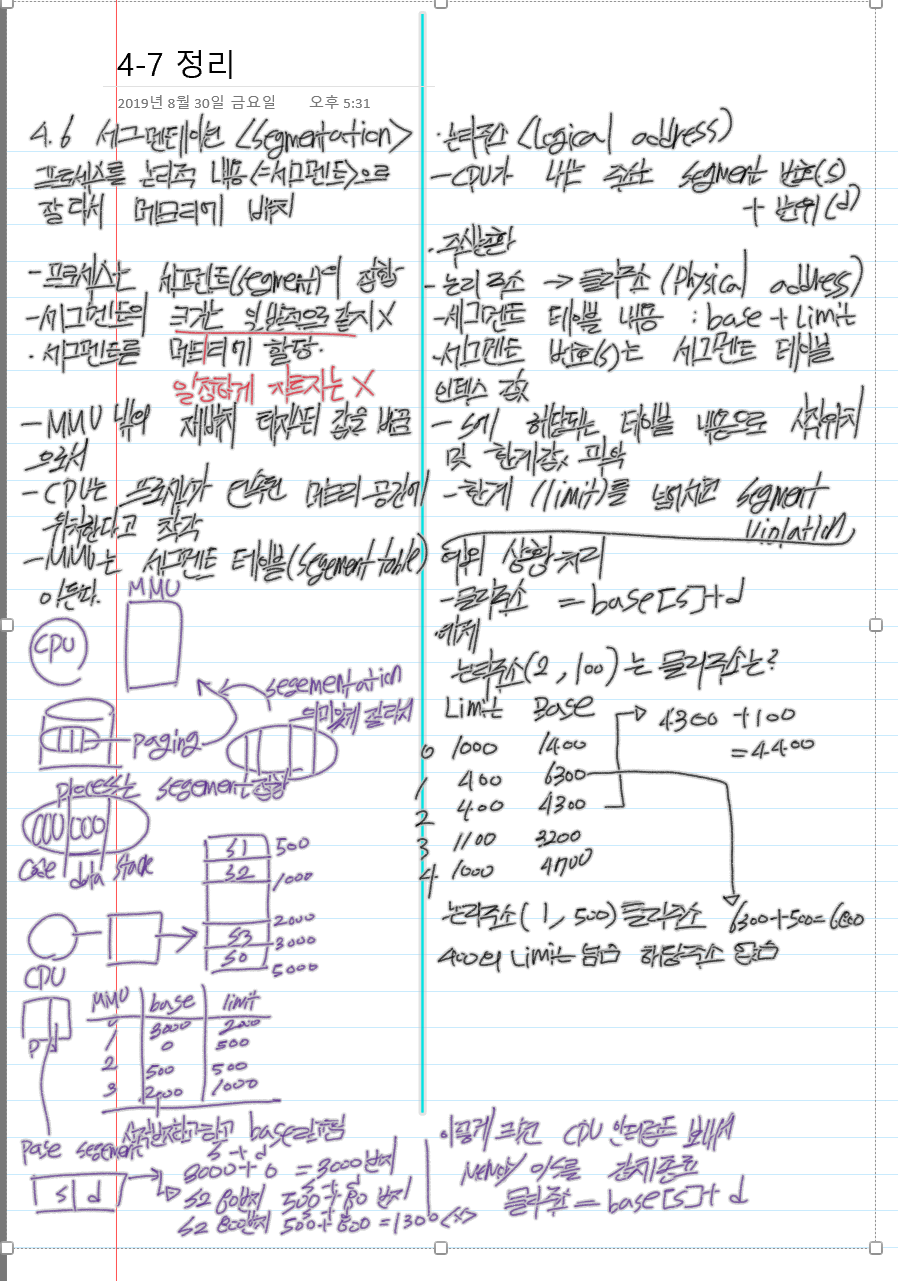 4-7 정리
2019년 8월 30일 금요일 오후 5:31
4.6 세그멘테이션 <Segmentation>
프로세스를 논리적 내용<=세그멘트>으로
잘라서 메모리에 배치
-프로세스는 세그먼트(segment)의 집합
-세그먼트의 크기는 일반적으로 같지X
·세그먼트를 메모리에 할당.
일정하게 자르지는 X
-MMU 내의 재배치 레지스터 값을 바꿈
으로서
-CPU는 프로세스가 연속된 메모리 공간에
위치한다고 착각
-MMU는 세그먼트 테이블(segement table)
이 된다.
MMU
CPU
segementation
의미있게 잘라서
paging
process는 segement집합
code data stack
S1 500
S2 1000
2000
S3 3000
S0 5000
CPU
MMU base limit
0 3000 2000
1 0 500
2 500 500
3 2000 1000
P d
base
s+d
3000+0 =3000번지
s+d
s d
S2 80번지 500+80 번지
s+d
S2 800번지 500+800 =1300<x>
·논리주소 <Logical address>
-CPU가 내는 주소는 segment 번호(s)
+ 변위(d)
·주소변환
-논리 주소 → 물리주소 (Physical address)
-세그먼트 테이블 내용 : base + Limit
-세그먼트 번호(s)는 세그먼트 테이블
인덱스 값
-s에 해당되는 테이블 내용으로 시작위치
및 한계값 파악
-한계 (limit)를 넘어서면 segment
violation
예외 상황 처리
-물리주소 = base[s]+d
예제
논리주소(2,100)는 물리주소는?
Limit Base
4300 +100
=4400
0 1000 1400
1 400 6300
2 400 4300
3 1100 3200
4 1000 4700
논리주소(1,500) 물리주소 6300+500=6800
400의 Limit 넘음 해당주소 없음
이렇게 되면 CPU 인터럽트 보내서
Memory
물리주소 = base[s]+d